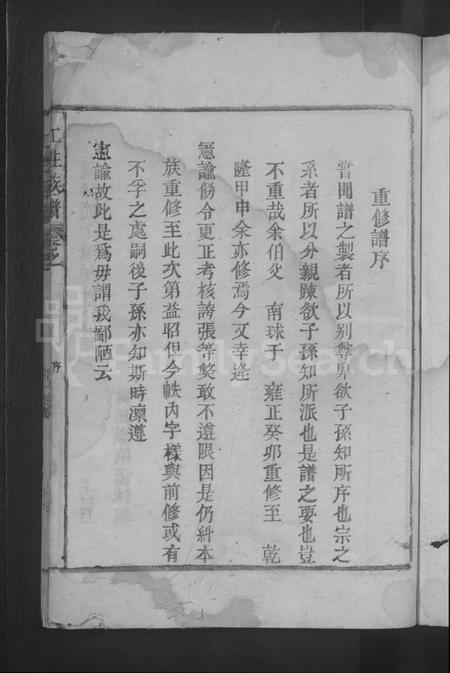 重修譜序
嘗聞譜之製者所以別尊卑欲子孫知所序也宗之
系者所以分親踈欲子孫知所派也是譜之要也豈
不重哉余伯父 南球于 雍正癸卯重修至 乾
隆甲申余亦修焉今又幸逄
憲諭飭令更正考核謗張等獘敢不遵限因是仍糾本
族重修至此次第益昭但今帙內字樣與前修或有
不孚之處嗣後子孫亦知斯時凛遵
憲諭故此是爲毋謂我鄙陋云
族譜
序
FamilySearch